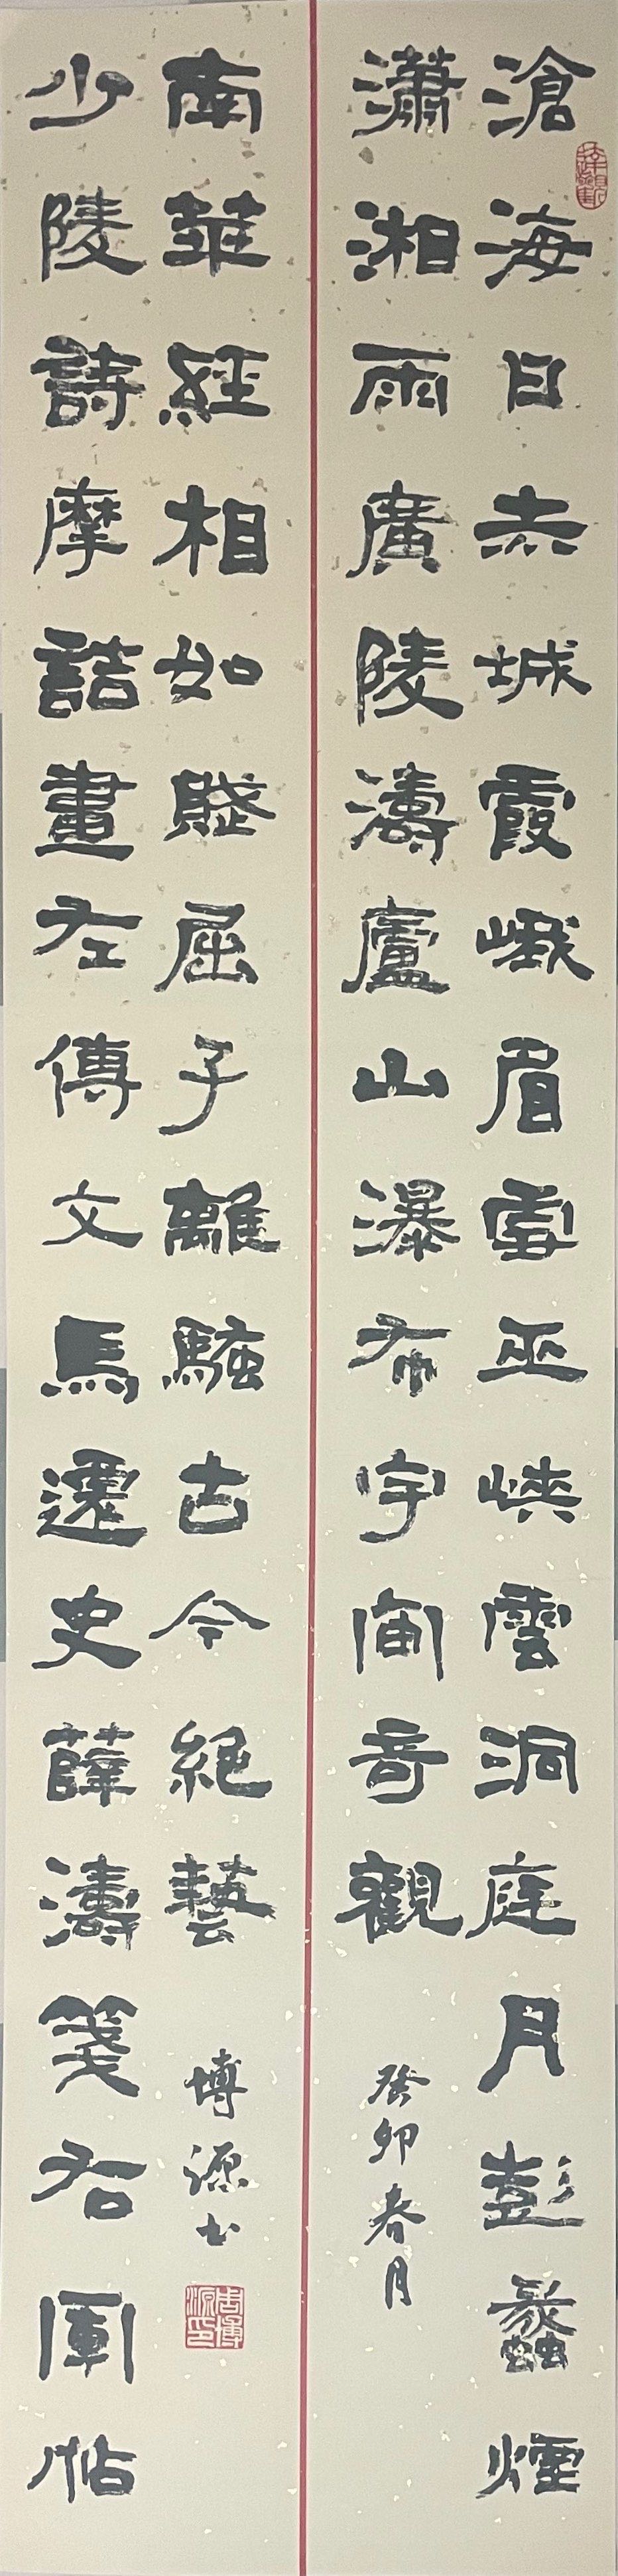 滄海日赤城霞峨眉雪巫峽雲洞庭月彭蠡煙
瀟湘雨廣陵濤廬山瀑布宇宙奇觀
癸卯春月
少陵詩摩詰畫左傳文馬遷史薛濤箋右軍帖
南華經相如賦屈子離騷古今絕藝
博源書
周博源印